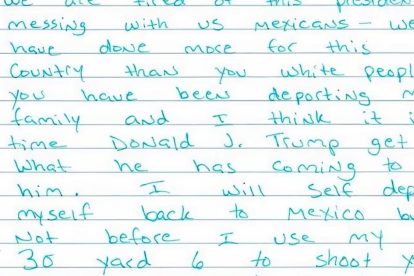 we are tired of this presiden
messing with us mexicans - w
have done more for this
Country than you white peopl
you have been deporting m
family and I think it i
time Donald J. Trump get
What he has coming to
him. I will self dep
myself back to mexico b
Not before I use my
30 yard 6 to shoot y